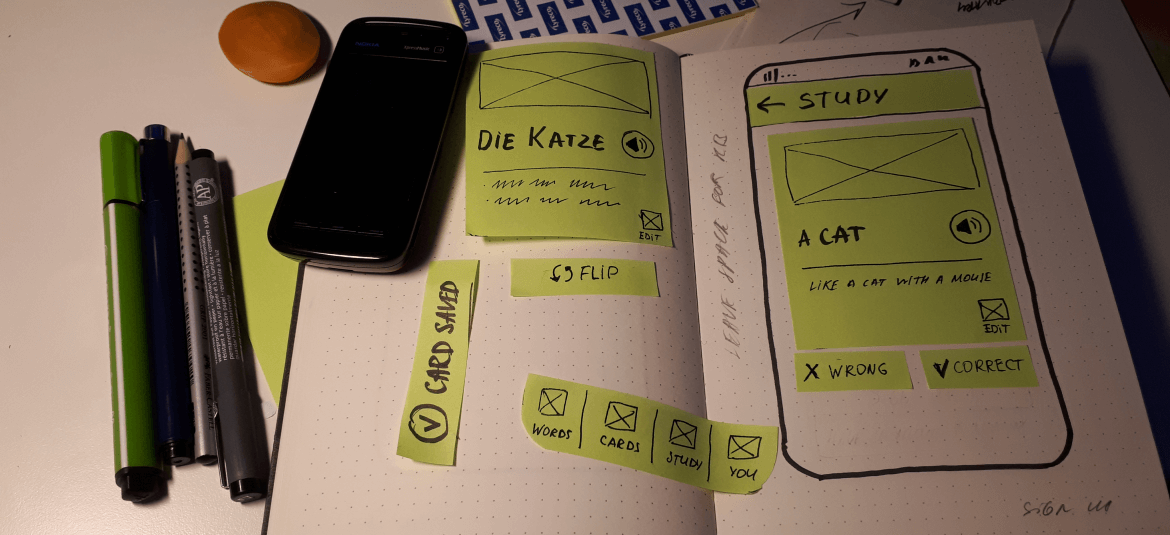 NOKIA
DIE KATZE
EDIT
FLIP
CARD SAVED
WORDS
CARDS
STUDY
YOU
LEAVE SPACE FOR
STUDY
A CAT
LIKE A CAT WITH A MOUSE
EDIT
X WRONG
CORRECT
AP
Lyreco